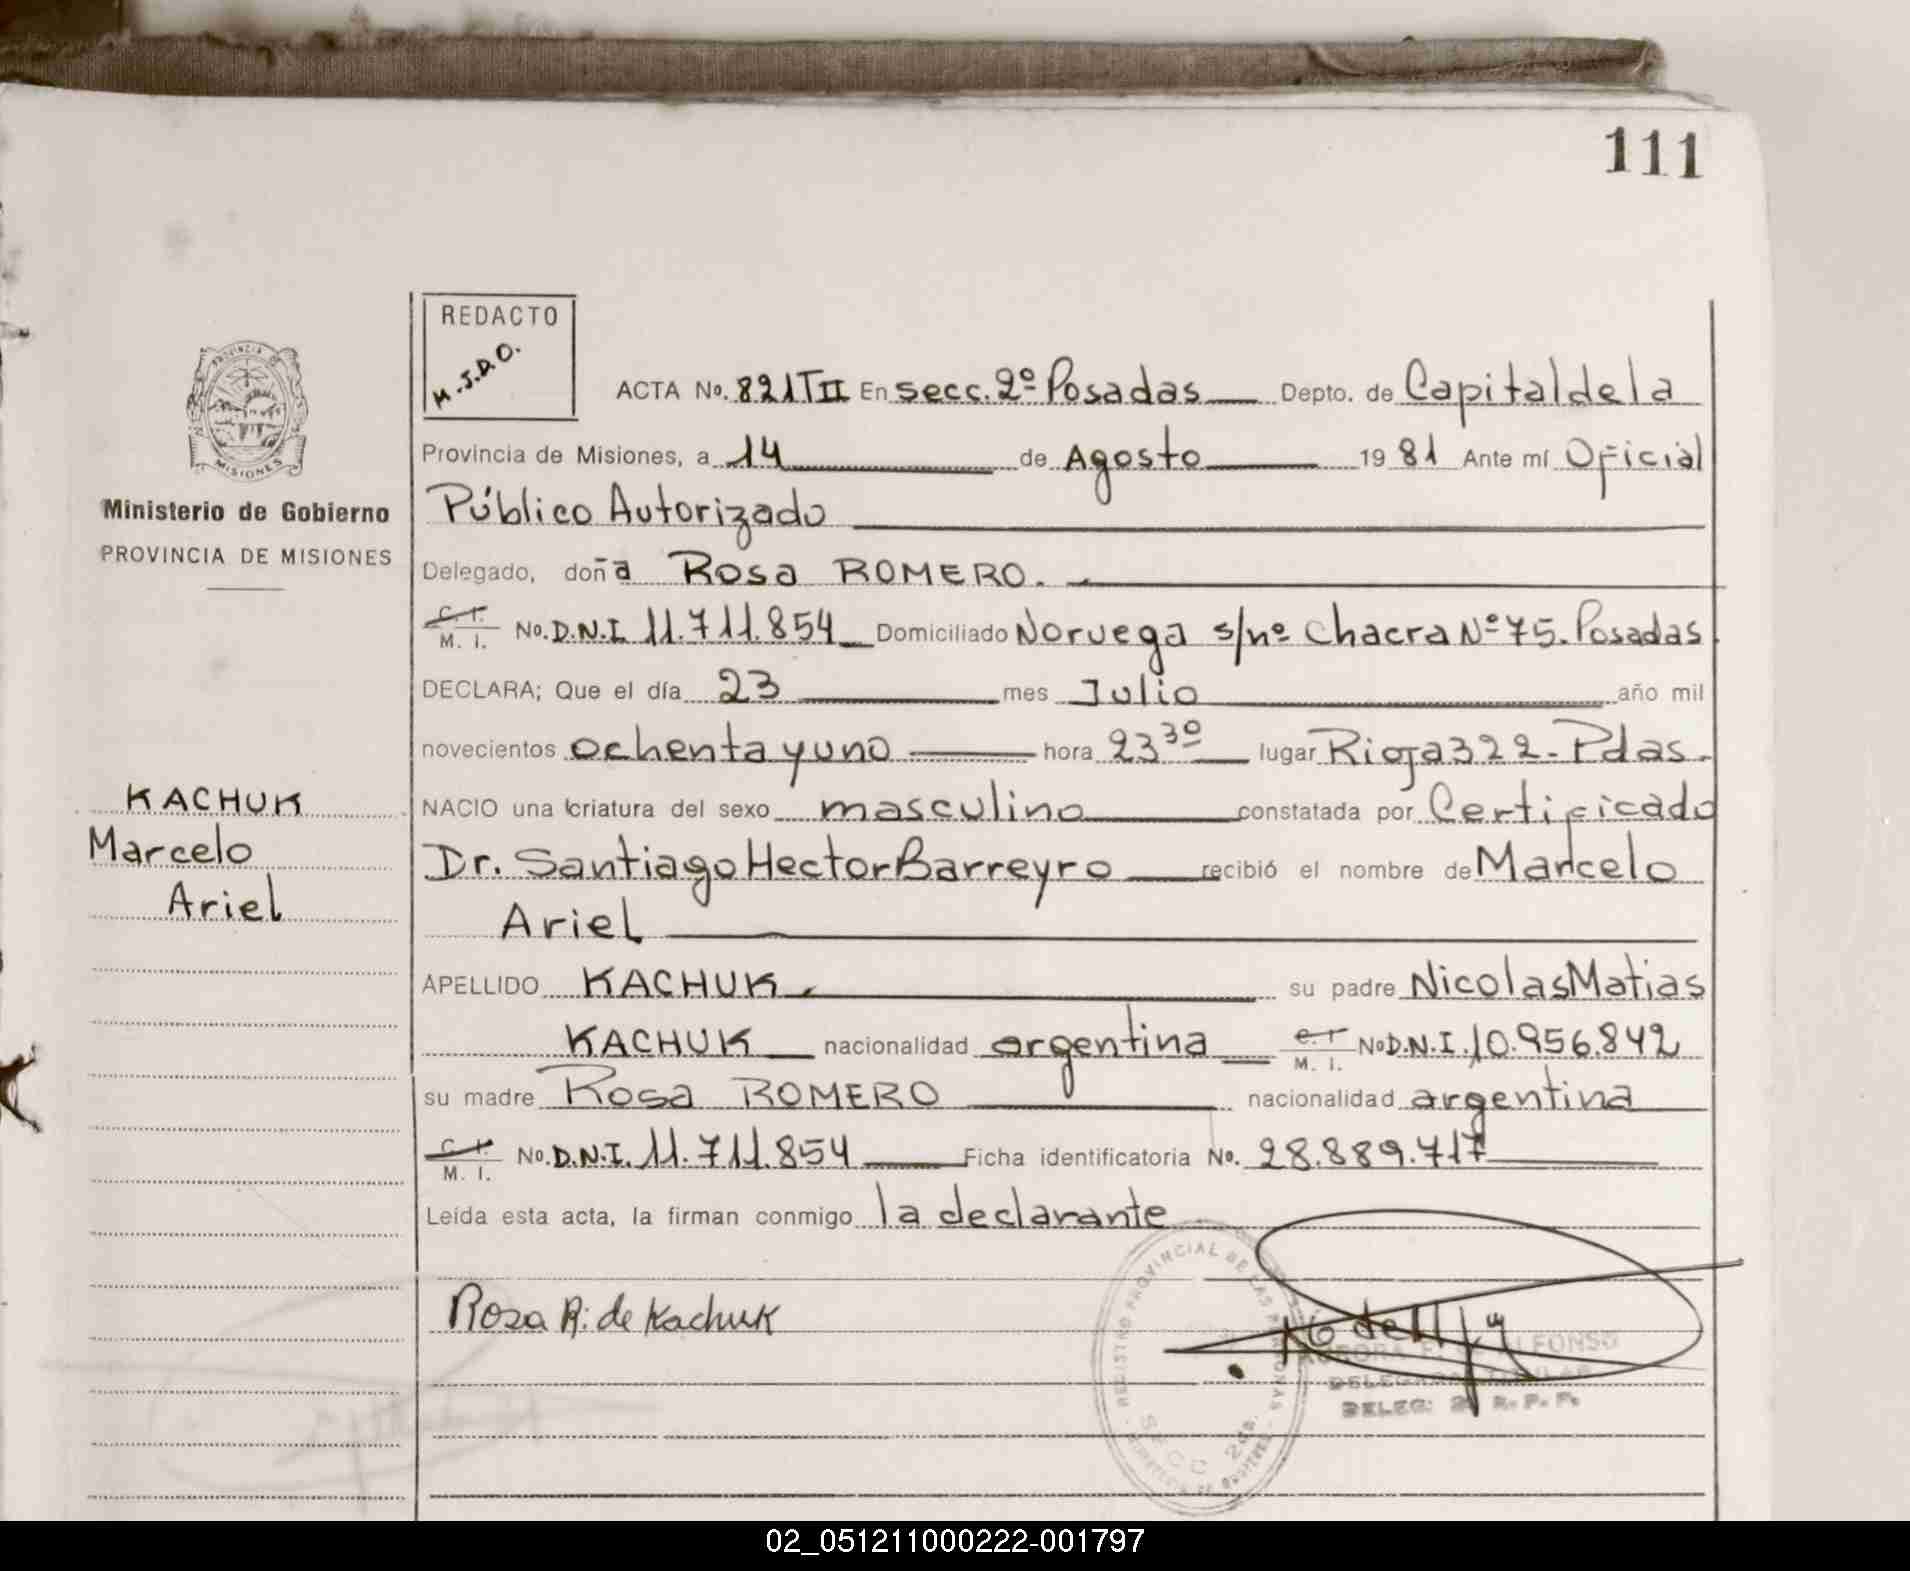 111
REDACTO
M.J.D.O.
ACTA No. 821 T II En secc. 2º Posadas Depto. de Capital de la
Provincia de Misiones, a 14 de Agosto 19 81 Ante mí Oficial
Público Autorizado
Delegado, doña Rosa ROMERO.
C. I.
M. I. No. D.N.I 11.711.854 Domiciliado Noruega s/nº Chacra Nº 75. Posadas
DECLARA; Que el día 23 mes Julio año mil
novecientos ochenta y uno hora 23 30 lugar Rioja 322 - Pdas.
NACIO una criatura del sexo masculino constatada por Certificado
Dr. Santiago Hector Barreyro recibió el nombre de Marcelo
Ariel
APELLIDO KACHUK su padre Nicolas Matias
KACHUK nacionalidad argentina C. I.
M. I. No D.N.I. 10.956.842
su madre Rosa ROMERO nacionalidad argentina
C. I.
M. I. No. D.N.I. 11.711.854 Ficha identificatoria No. 28.889.717
Leída esta acta, la firman conmigo la declarante
Rosa R. de Kachuk
PROVINCIA DE
MISIONES
Ministerio de Gobierno
PROVINCIA DE MISIONES
KACHUK
Marcelo
Ariel
REGISTRO PROVINCIAL DE LAS PERSONAS
SECC 2da.
ALFONSO
DELEG: 2 R. P. P.
02_051211000222-001797